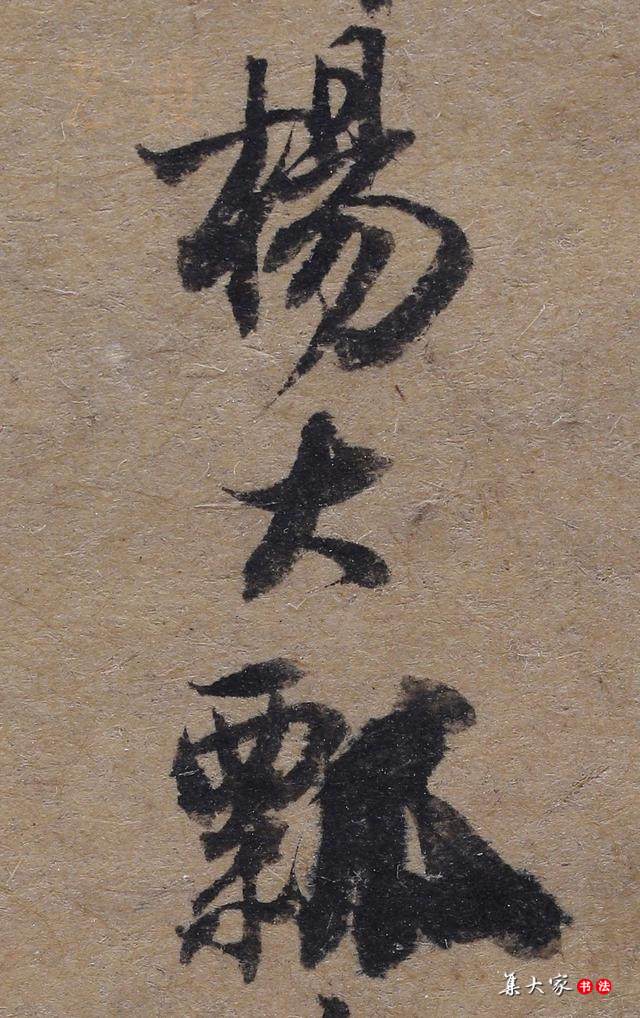 楊大瓢
集大家书法